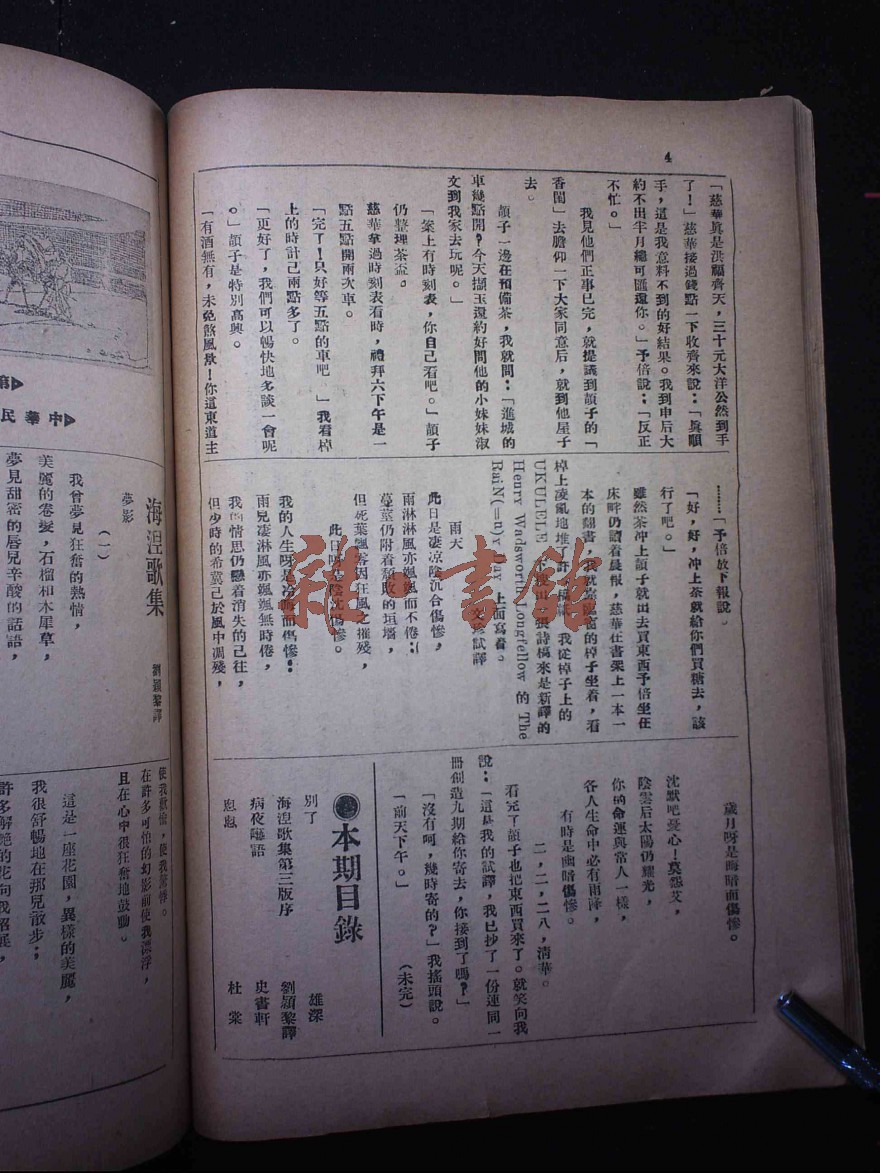 4
「慈華眞是洪福齊天，三十元大洋公然到手
了！」慈華接過錢點一下收齊來說：「眞順
手，這是我意料不到的好結果。我到申后大
約不出半月總可匯還你。」予倍說；「反正
不忙。」
我見他們正事已完，就提議到頡子的「
香閨」去瞻仰一下大家同意后，就到他屋子
去。
頡子一邊在預備茶，我就問：「進城的
車幾點開？今天擷玉還約好問他的小妹妹淑
文到我家去玩呢。」
「案上有時刻表，你自己看吧。」頡子
仍整理茶盃。
慈華拿過時刻表看時，禮拜六下午是一
點五點開兩次車。
「完了！只好等五點的車吧。」我看棹
上的時計已兩點多了。
「更好了，我們可以暢快地多談一會呢
。」頡子是特別高興。
「有酒無肴，未免煞風景！你這東道主
………「予倍放下報說。
「好，好，冲上茶就給你們買糖去，該
行了吧。」
雖然茶冲上頡子就出去買東西予倍坐在
床畔仍讀着晨報，慈華在書架上一本一
本的翻書，我就靠
的棹子坐着，看
棹上凌亂地堆了許多
我從棹子上的
UKULELE
張詩稿來是新譯的
Henry Wadsworth Longfellow 的 The
RaiN(＝n)y Day 上面寫着。
雨天
試譯
此日是凄凉陰沉合傷慘，
雨淋淋風亦颯颯而不倦：
蔓莖仍附着頹敗的垣墻，
但死葉飄零因狂風之摧殘，
此日呀是陰沈傷慘。
我的人生呀是冷晦而傷慘：
雨兒凄淋風亦颯颯無時倦，
我的情思仍戀着消失的已往，
但少時的希冀已於風中凋殘，
歲月呀是晦暗而傷慘。
沈默吧憂心！莫怨艾，
陰雲后太陽仍耀光，
你的命運與常人一樣，
各人生命中必有雨降，
有時是幽暗傷慘。
二，二，二八，清華。
看完了頡子也把東西買來了。就笑向我
說：「這是我的試譯，我已抄了一份連同一
冊創造九期給你寄去，你接到了嗎？」
「沒有呵，幾時寄的？」我搖頭說。
「前天下午。」
（未完）
本期目錄
別了 雄深
海涅歌集第三版序 劉穎黎譯
病夜囈語 史書軒
恩恩 杜棠
第
中華民
海涅歌集
劉穎黎譯
夢影
（一）
我曾夢見狂奮的熱情，
美麗的卷髮，石榴和木犀草，
夢見甜密的唇兒辛酸的話語，
在許多可怕的幻影前使我漂浮，
且在心中很狂奮地鼓動。
這是一座花園，異樣的美麗，
我很舒暢地在那兒散步；
雜·書館